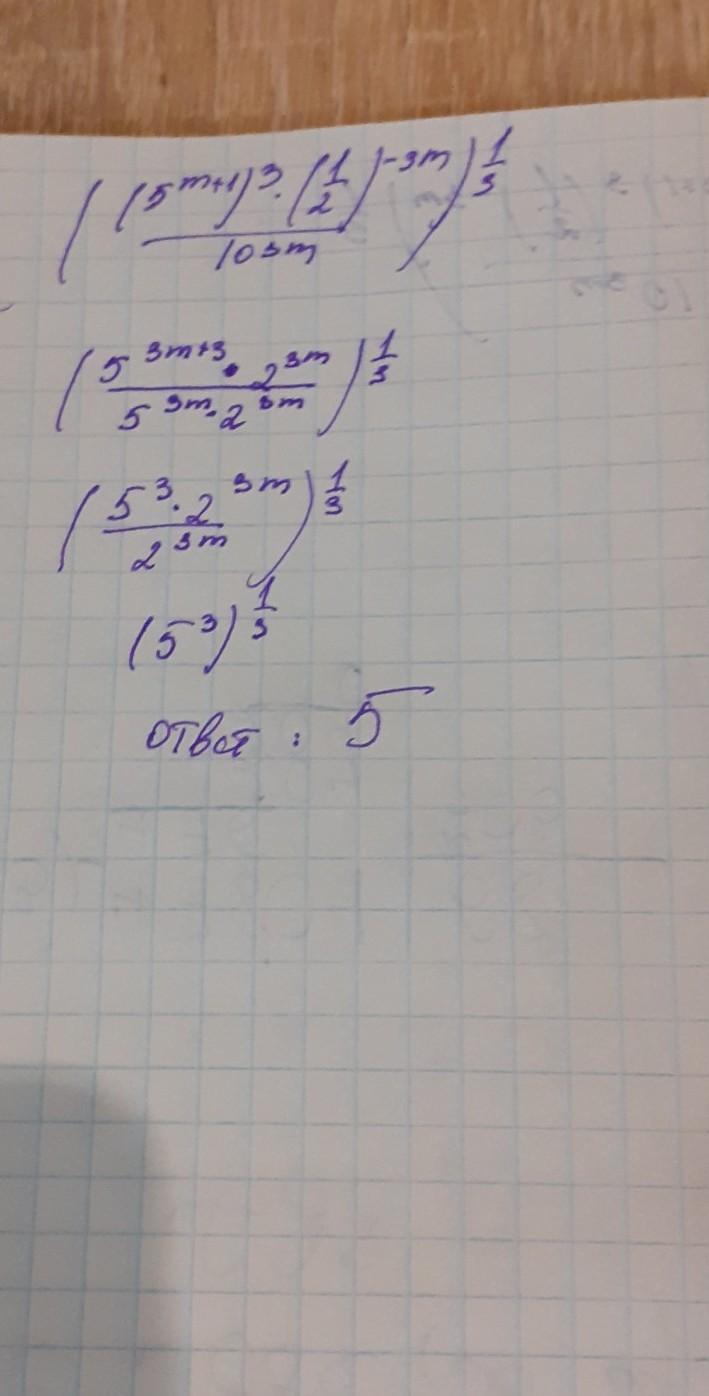 (((5^{m+1})^3 · (1/2)^{-3m}) / 10^{3m})^{1/3}
((5^{3m+3} · 2^{3m}) / (5^{3m} · 2^{3m}))^{1/3}
((5^3 · 2^{3m}) / 2^{3m})^{1/3}
(5^3)^{1/3}
ответ : 5